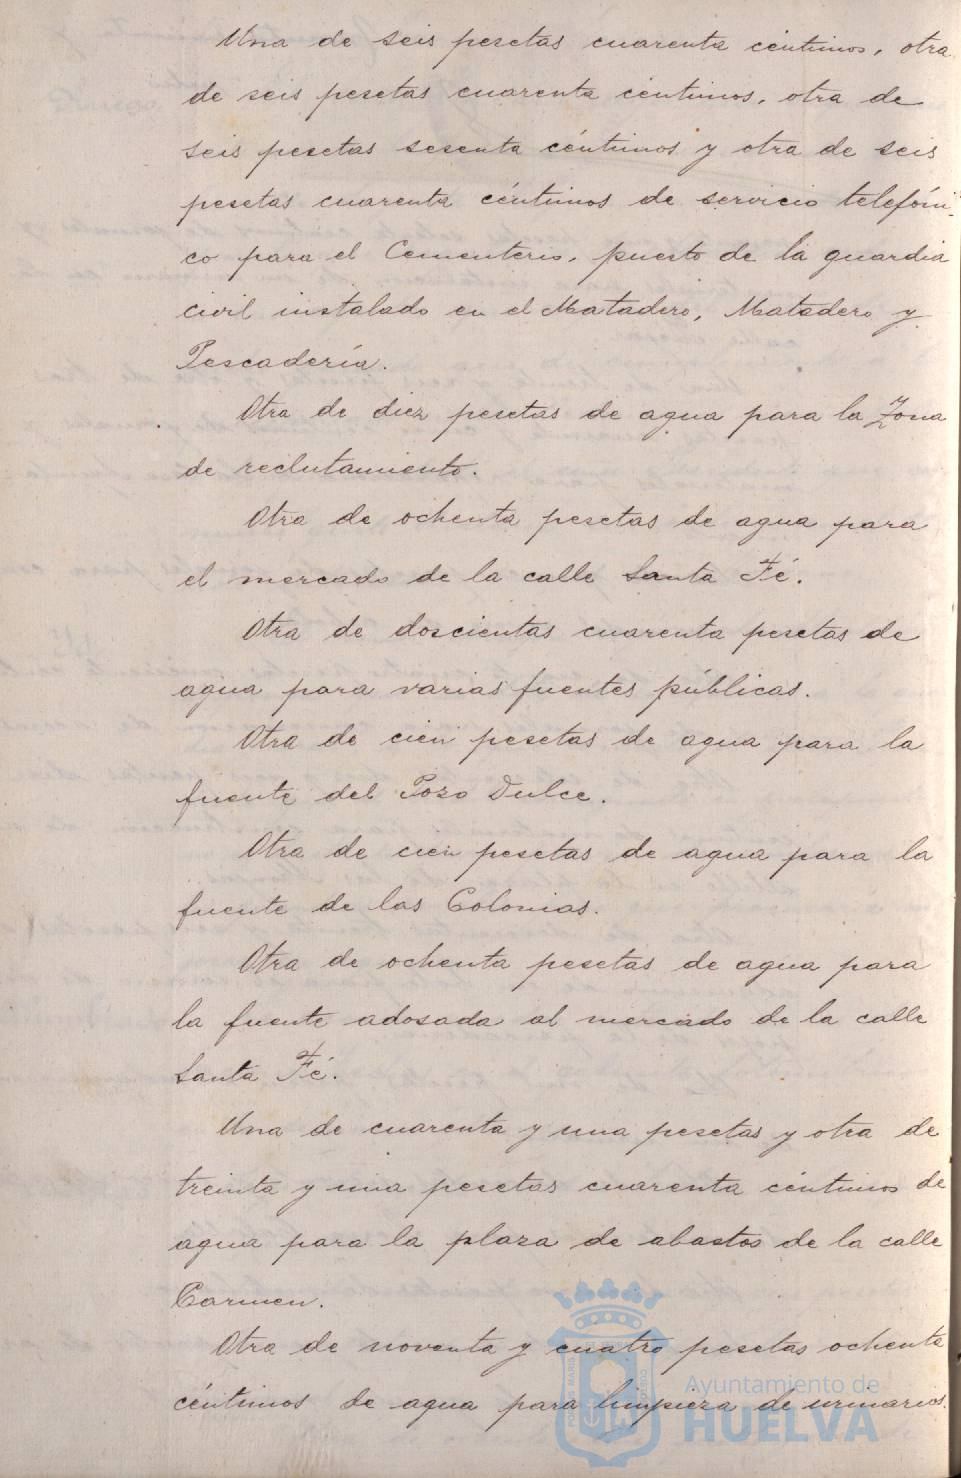 Una de seis pesetas cuarenta céntimos, otra
de seis pesetas cuarenta céntimos, otra de
seis pesetas sesenta céntimos y otra de seis
pesetas cuarenta céntimos de servicio telefóni-
co para el Cementerio, puesto de la guardia
civil instalado en el Matadero, Matadero y
Pescadería.
Otra de diez pesetas de agua para la Zona
de reclutamiento.
Otra de ochenta pesetas de agua para
el mercado de la calle Santa Fé.
Otra de doscientas cuarenta pesetas de
agua para varias fuentes públicas.
Otra de cien pesetas de agua para la
fuente del Pozo Dulce.
Otra de cien pesetas de agua para la
fuente de las Colonias.
Otra de ochenta pesetas de agua para
la fuente adosada al mercado de la calle
Santa Fé.
Una de cuarenta y una pesetas y otra de
treinta y una pesetas cuarenta céntimos de
agua para la plaza de abastos de la calle
Carmen.
Otra de noventa y cuatro pesetas ochenta
céntimos de agua para limpieza de urinarios.
Ayuntamiento de
HUELVA